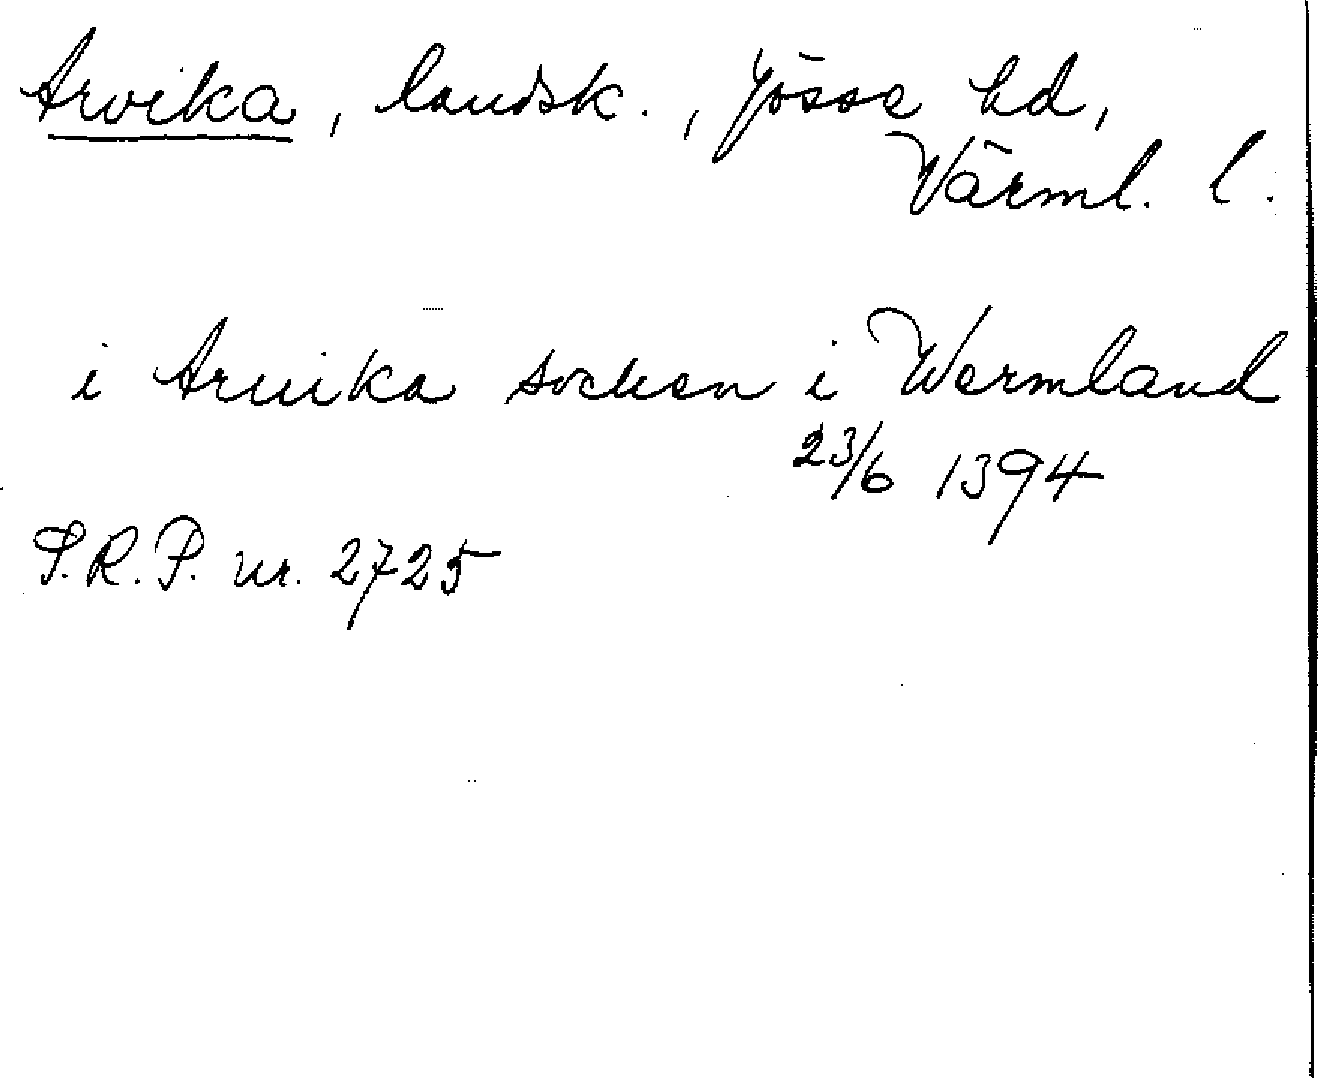 Arvika, landsk., Jösse hd,
Värml. l.
i Aruika sochen i Wermland
23/6 1394
P.R.P. nr. 2725